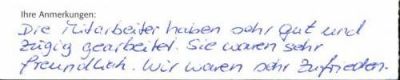 Ihre Anmerkungen:
Die Mitarbeiter haben sehr gut und
zügig gearbeitet. Sie waren sehr
freundlich. Wir waren sehr zufrieden.